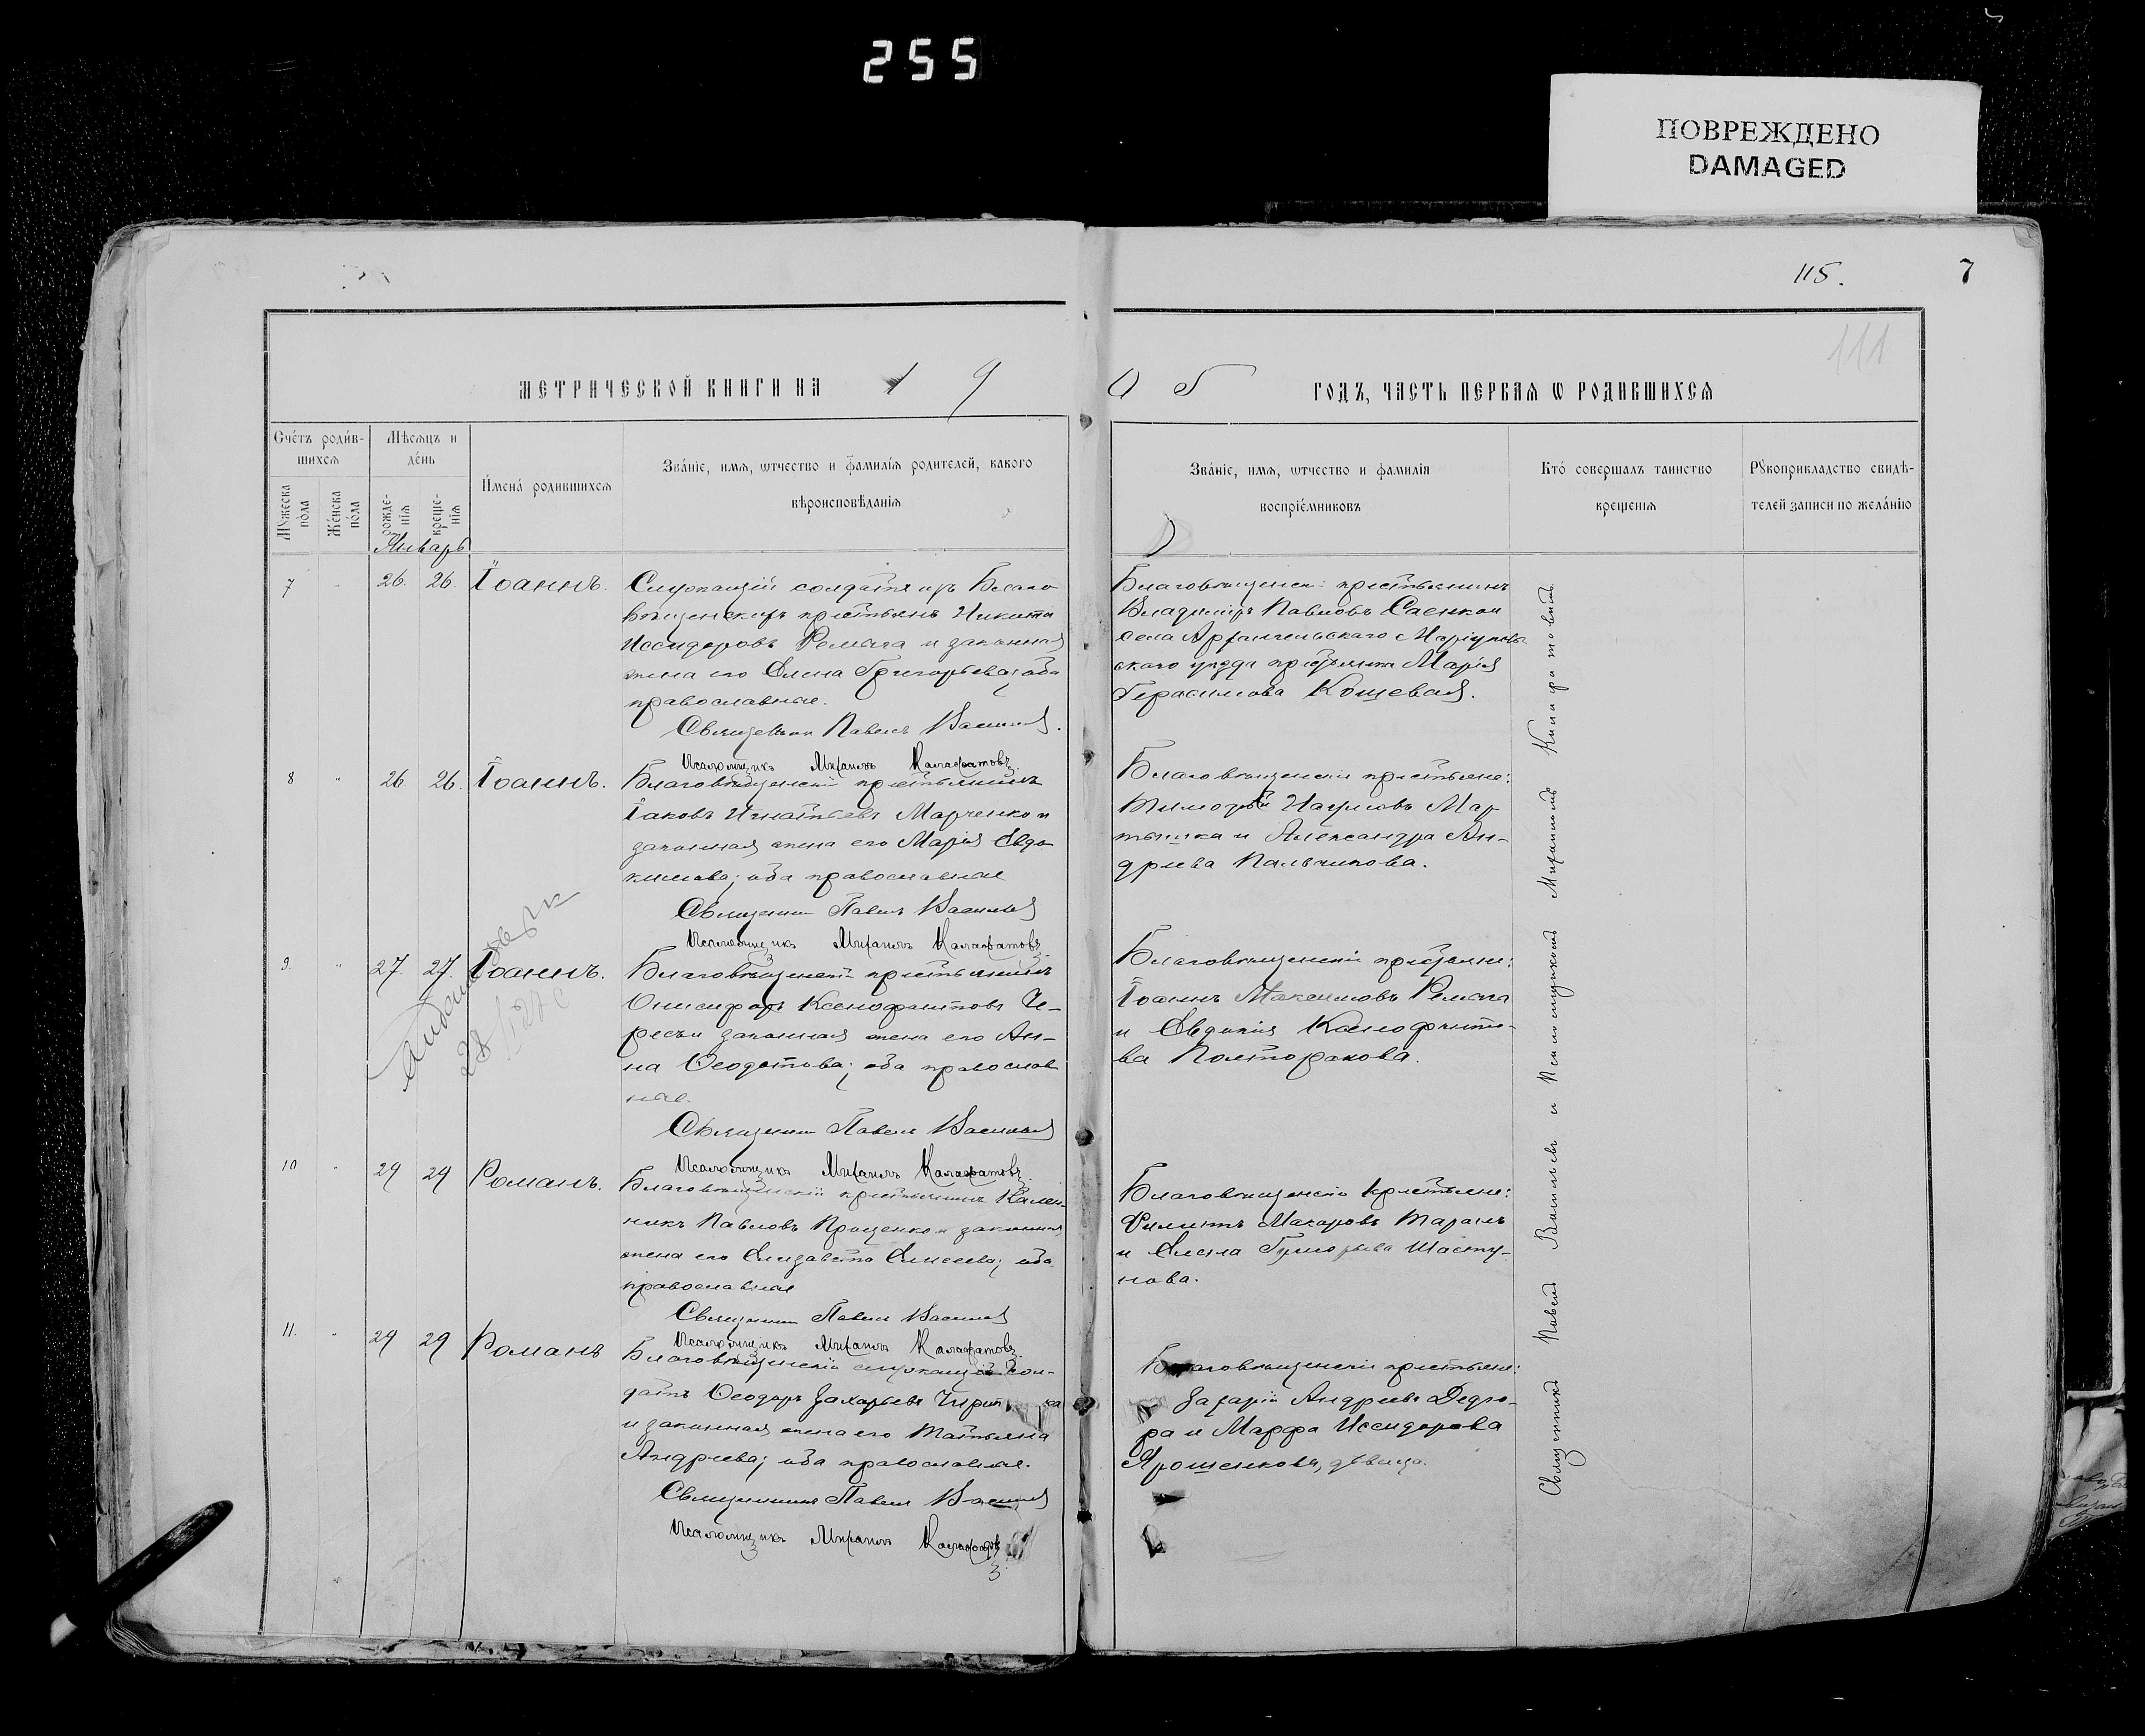 255
ПОВРЕЖДЕНО
DAMAGED
115.
7
111
МЕТРИЧЕСКОЙ КНИГИ НА 19
05 ГОДЪ, ЧАСТЬ ПЕРВАЯ Ѡ РОДИВШИХСЯ
Сче́тъ роди́в-
шихся
Мѣсяцъ и
де́нь
Мꙋжеска
по́ла
Же́нска
по́ла
рожде-
нія
креще-
нія
И́мена́ родившихся
Зва́ніе, имя, ѡтчество и фамилія родителей, какого
вѣроисповѣданія
Зва́ніе, имя, ѡтчество и фамиліи
воспріе́мниковъ
Кто́ совершалъ таинство
крещенія
Рꙋкоприкладство свидѣ-
телей записи по жела́нію
Январь
7 " 26. 26. Іоаннъ.
Служащій солдатъ изъ Благо
вѣщенскихъ крестьянъ Никита
Исидоровъ Ремыга и законная
жена его Елена Григорьева; оба
православные.
Священникъ Павелъ Васильевъ.
Псаломщикъ Михаилъ Калафатовъ.
Благовѣщенск: крестьянинъ
Владиміръ Павловъ Саенко и
села Архангельскаго Маріуполь
скаго уѣзда крестьянка Марія
Герасимова Кошевая.
8 " 26. 26. Іоаннъ.
Благовѣщенскій крестьянинъ
Іаковъ Игнатьевъ Марченко и
законная жена его Марія Евдо
кимова; оба православные
Священникъ Павелъ Васильевъ
Псаломщикъ Михаилъ Калафатовъ.
Благовѣщенскіе крестьяне:
Тимофей Наумовъ Мар
тышка и Александра Ан-
дреева Пальчикова.
9. " 27. 27. Іоаннъ.
Благовѣщенскій крестьянинъ
Онисифоръ Ксенофонтовъ Че-
ресъ и законная жена его Ан-
на Ѳеодотова; оба православ
ные.
Священникъ Павелъ Васильевъ
Псаломщикъ Михаилъ Калафатовъ.
Благовѣщенскіе крестьяне:
Іоаннъ Максимовъ Ремыга
и Евдокія Ксенофонто-
ва Полторакова.
10 " 29 29 Романъ.
Благовѣщенскій крестьянинъ Кален-
никъ Павловъ Проценко и законная
жена его Елизавета Елисеева; оба
православные
Священникъ Павелъ Васильевъ
Псаломщикъ Михаилъ Калафатовъ.
Благовѣщенскіе крестьяне:
Филиппъ Макаровъ Таранъ
и Елена Григорьева Шасту-
нова.
11. " 29 29 Романъ
Благовѣщенскій служащій сол-
датъ Ѳеодоръ Захарьевъ
и законная жена его Татьяна
Андреева; оба православные.
Священникъ Павелъ Васильевъ
Псаломщикъ Михаилъ Калафатовъ
Благовѣщенскіе крестьяне:
Захарій Андреевъ Дедю-
ра и Марфа Исидорова
Ярошенкова, дѣвица.
Священникъ Павелъ Васильевъ и Псаломщикъ Михаилъ Калафатовъ